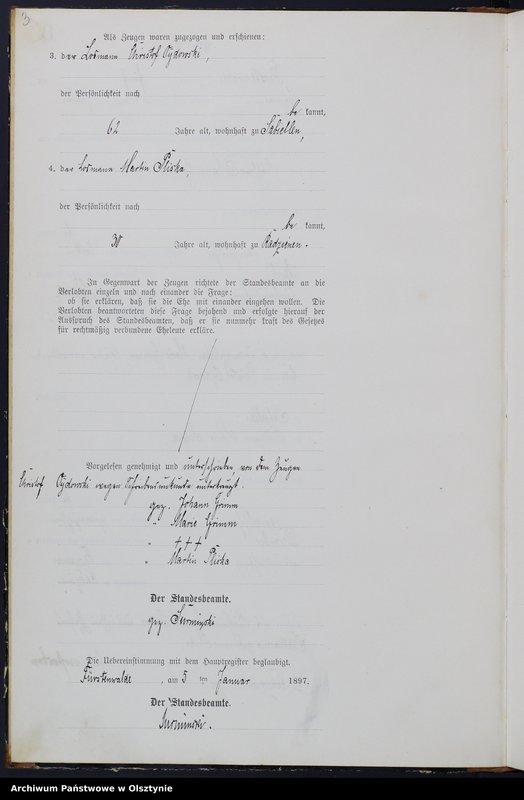 3
Als Zeugen waren zugezogen und erschienen:
3. der Losmann Christof Cydowski,
der Persönlichkeit nach
be kannt,
62 Jahre alt, wohnhaft zu Sabiellen,
4. der Losmann Martin Pliska,
der Persönlichkeit nach
be kannt,
30 Jahre alt, wohnhaft zu Radzienen.
In Gegenwart der Zeugen richtete der Standesbeamte an die
Verlobten einzeln und nach einander die Frage:
ob sie erklären, daß sie die Ehe mit einander eingehen wollen. Die
Verlobten beantworteten diese Frage bejahend und erfolgte hierauf der
Ausspruch des Standesbeamten, daß er sie nunmehr kraft des Gesetzes
für rechtmäßig verbundene Eheleute erkläre.
Vorgelesen genehmigt und unterschrieben, von dem Zeugen
Christof Cydowski wegen Schreibensunkunde unterkreuzt.
gez. Johann Grimm
" Marie Grimm
" † † †
" Martin Pliska
Der Standesbeamte.
gez. Surminski
Die Uebereinstimmung mit dem Hauptregister beglaubigt.
Fürstenwalde, am 5 ten Januar 1897.
Der Standesbeamte.
Surminski.
Archiwum Państwowe w Olsztynie